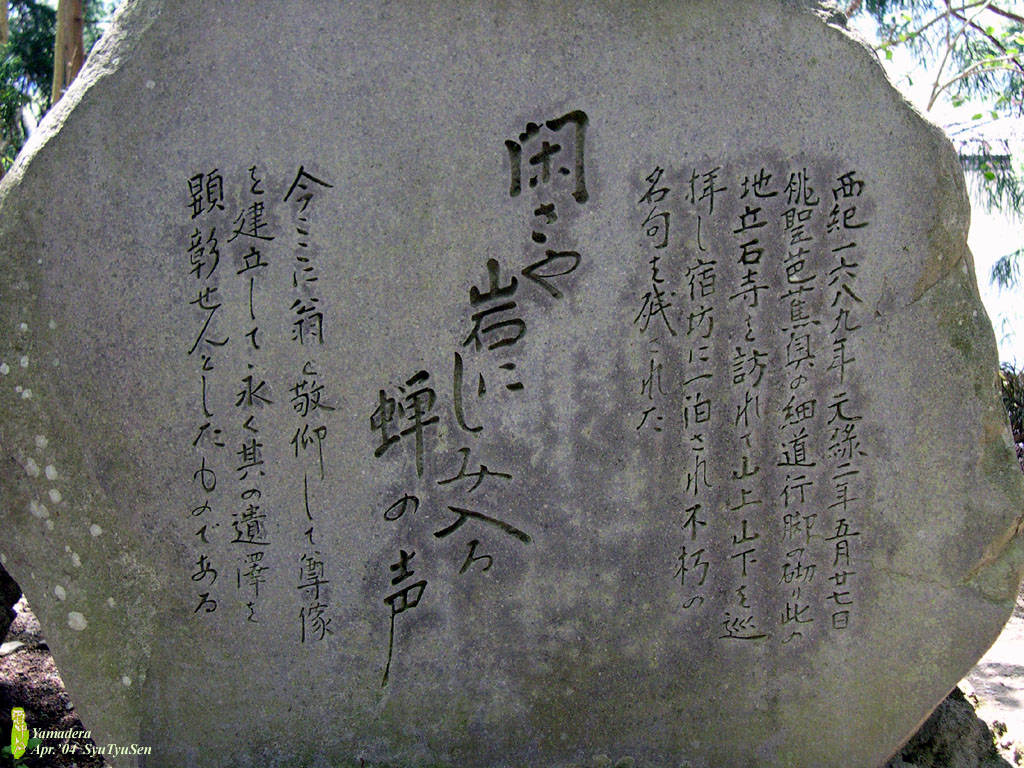 西紀一六八九年元祿二年五月廿七日
俳聖芭蕉奥の細道行脚の砌り此の
地立石寺を訪れて山上山下を巡
拝し宿坊に一泊され不朽の
名句を残された
閑さや
岩にしみ入る
蝉の声
今ここに翁を敬仰して尊像
を建立して永く其の遺澤を
顕彰せんとしたものである
Yamadera
Apr.'04 SyuTyuSen